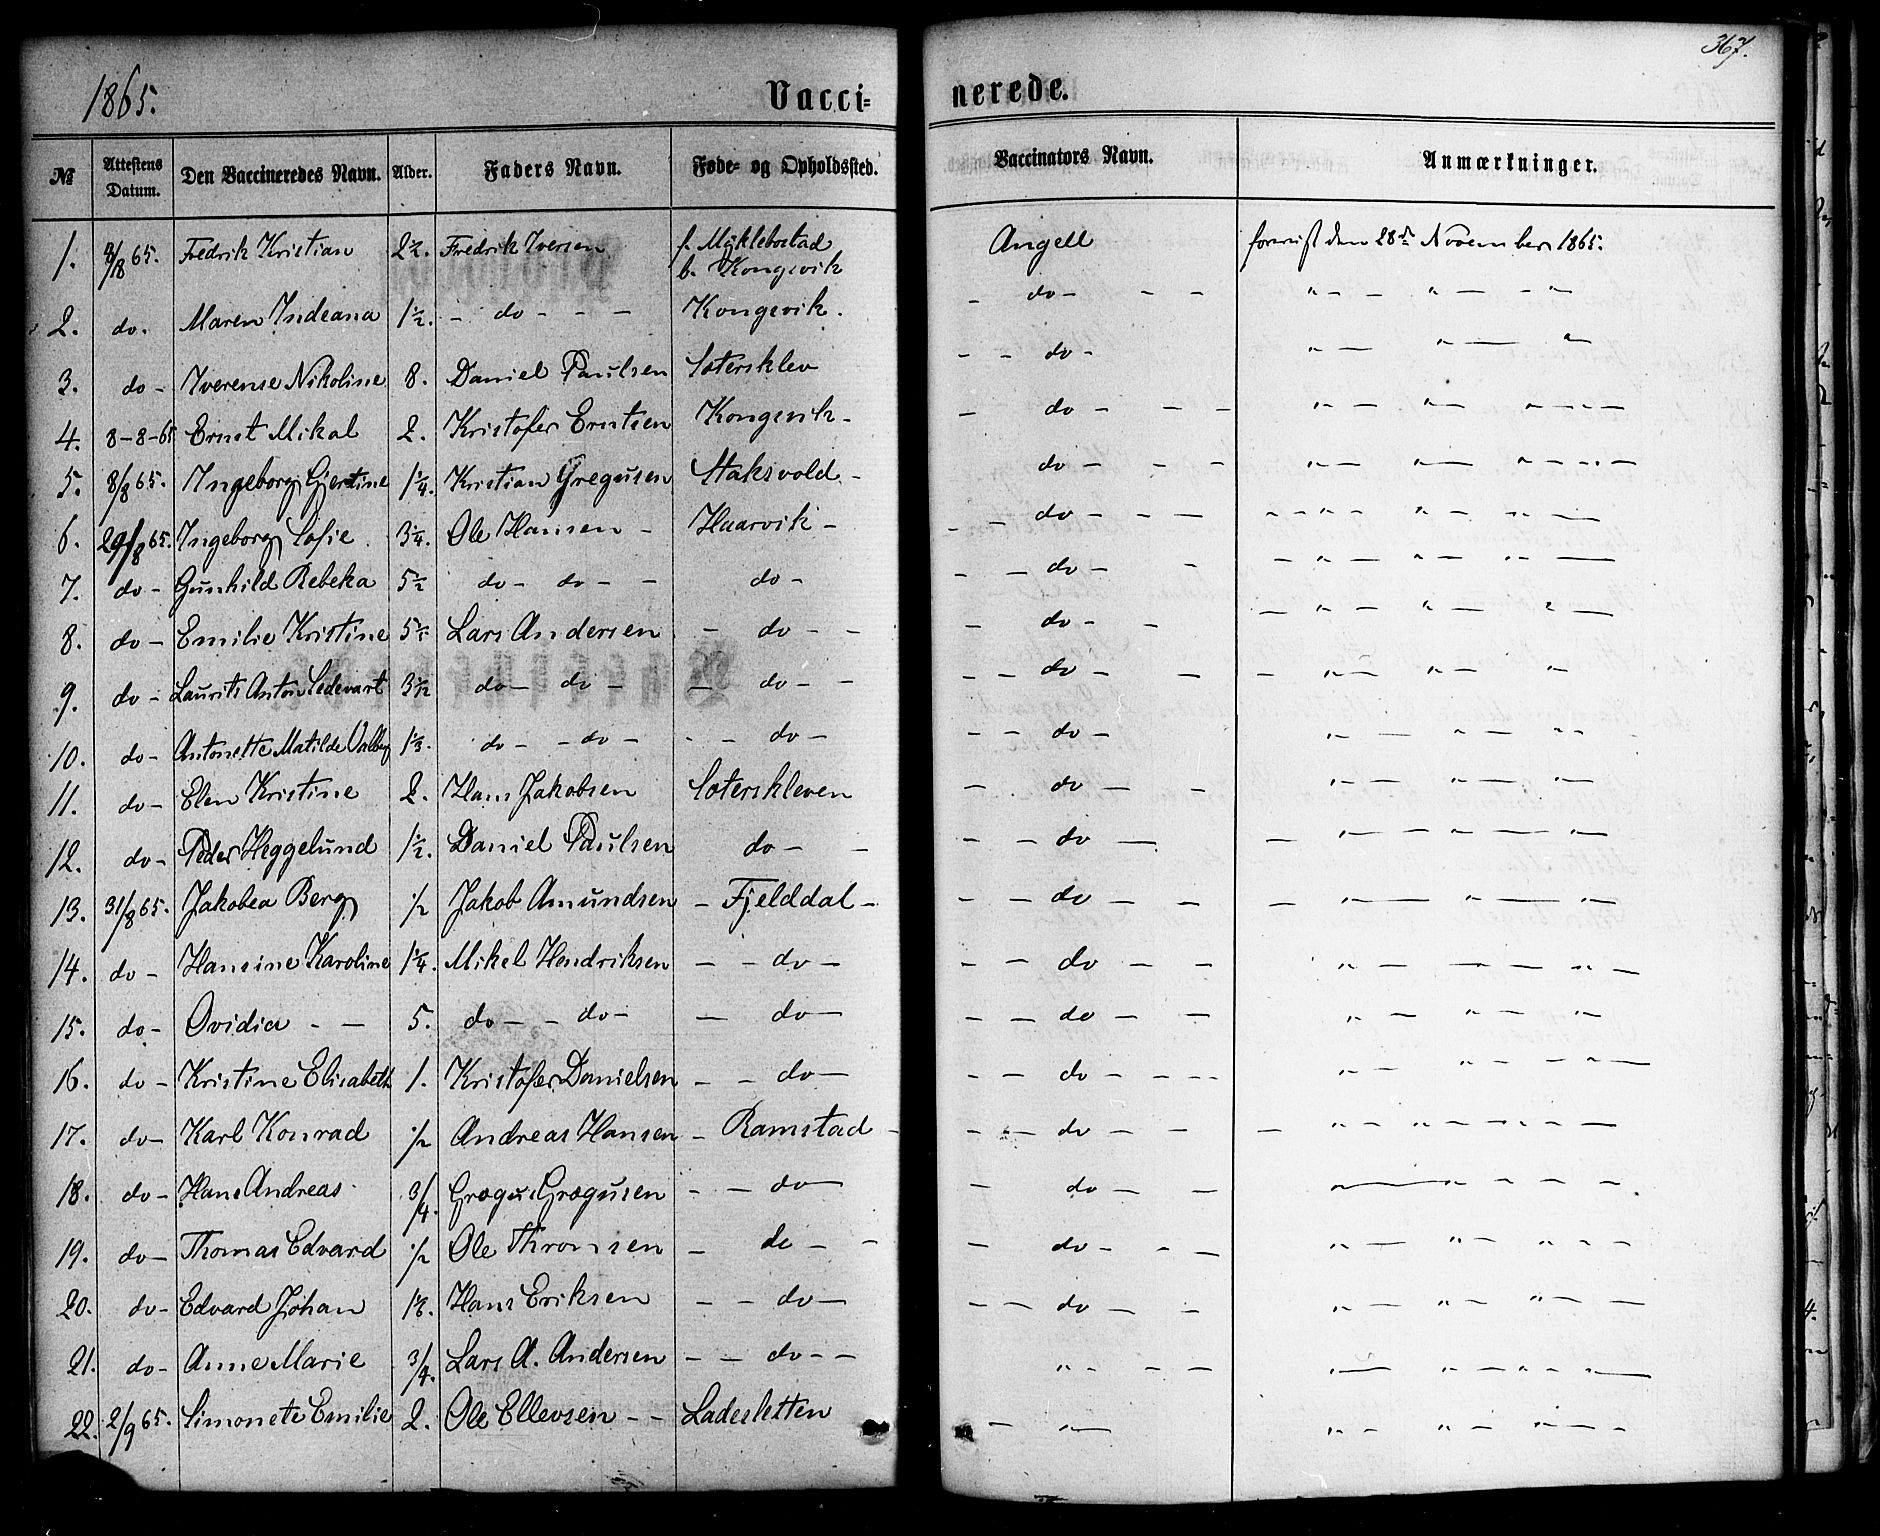 367.
1865. Vacci= nerede.
№ Attestens Datum. Den Vaccineredes Navn. Alder. Faders Navn. Føde- og Opholdssted. Vaccinators Navn. Anmærkninger.
1. 8/8 65. Fredrik Kristian 2½. Fredrik Iversen f. Myklebostad b. Kongsvik Angell forevist den 28de November 1865.
2. do. Maren Indeana 1½. - do - - - Kongsvik. - do - - - " - - " - - "
3. do - Iverense Nikoline 8. Daniel Paulsen Sætersklev - - do - " - " - "
4. 8-8-65 Ernst Mikal 2. Kristofer Erntsen Kongsvik - - do - - - " - " - " - " -
5. 8/8 65. Ingeborg Gjertine 1¼. Kristian Gregusen Staksvold - do - - - " - " - " - " -
6. 29/8 65. Ingeborg Sofie 3¼. Ole Hansen - Haarvik - - - do - - - " - " - " - " -
7. do - Gunhild Rebeka 5½ do - do - - do - - - do - - - " - " - " - " -
8. do - Emilie Kristine 5½ Lars Andersen - do - - - do - - - " - " - " -
9. do - Laurits Anton Sedevart 3½ do - do - - do - - - - do - - - " - " - "
10. do - Antonette Matilde Valborg 1⅓. do - - do - - - do - - - do - " - " - "
11. do - Elen Kristine 2. Hans Jakobsen Sæterskleven - do - - " - " - " -
12. do - Peder Heggelund 1½. Daniel Paulsen do - - - - do - - " - " - " -
13. 31/8 65. Jakobea Berg ½ Jakob Amundsen - Fjelddal - - - do - - - " - " - " -
14. do - Hansine Karoline 1¼. Mikel Hendriksen - - do - - - do - - " - " - " -
15. do - Ovidia - - 5. do - - do - - do - - - do - - " - " - " -
16. do - Kristine Elisabeth 1. Kristofer Danielsen - - do - - - do - - - " - " - " -
17. do - Karl Konrad ½ Andreas Hansen - Ramstad - - - do - - - " - " - " -
18. do - Hans Andreas 3/4. Grægus Grægusen - - do - - do - - " - " - " -
19. do - Thomas Edvard ½ Ole Thromsen - do - - - do - - - " - " - " -
20. do - Edvard Johan Hans Eriksen - - do - - - do - - " - " - " -
21. do - Anne Marie 3/4. Lars A. Andersen - - do - - " - - - " - " - " -
22. 2/9 65. Simonete Emilie 2. Ole Ellevsen - - Ladesletten - " - " - " - " -